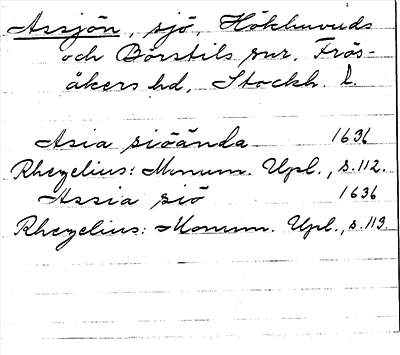 Assjön, sjö, Hökhuvuds
och Börstils snr, Frös-
åkers hd, Stockh. l.
Asia siöända 1636
Rhezelius: Monum. Upl., s. 112.
Assia siö 1636
Rhezelius: Monum. Upl., s. 113.